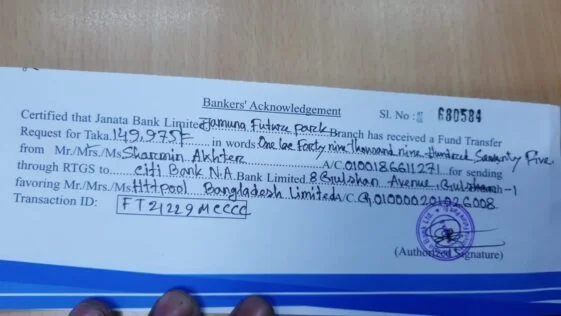 Bankers' Acknowledgement
Sl. No : 680584
Certified that Janata Bank Limited Jamuna Future park Branch has received a Fund Transfer
Request for Taka. 149,975/= in words One lac Forty nine thousand nine Hundred Seventy Five
from Mr./Mrs./Ms Sharmin Akhter A/C. 0100186611271 for sending
through RTGS to citi Bank N.A. Bank Limited. Gulshan Avenue, Gulshan-1
favoring Mr./Mrs./Ms. Httpool Bangladesh Limited A/C.
Transaction ID: FT21229MCCCC
(Authorized Signature)